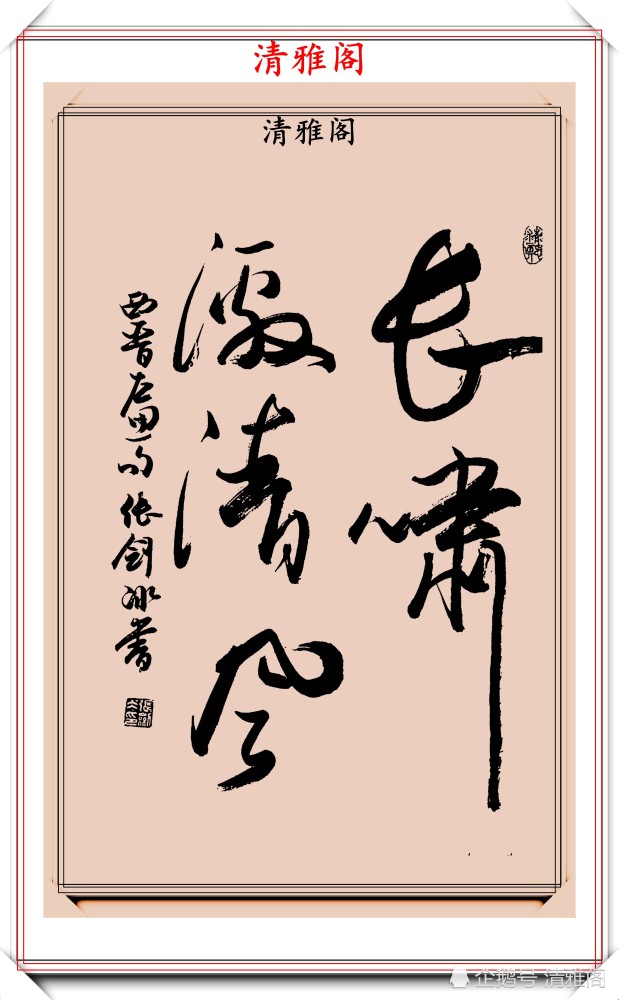 清雅阁
清雅阁
长啸
激清风
西晋左思句张剑冰书
企鹅号 清雅阁